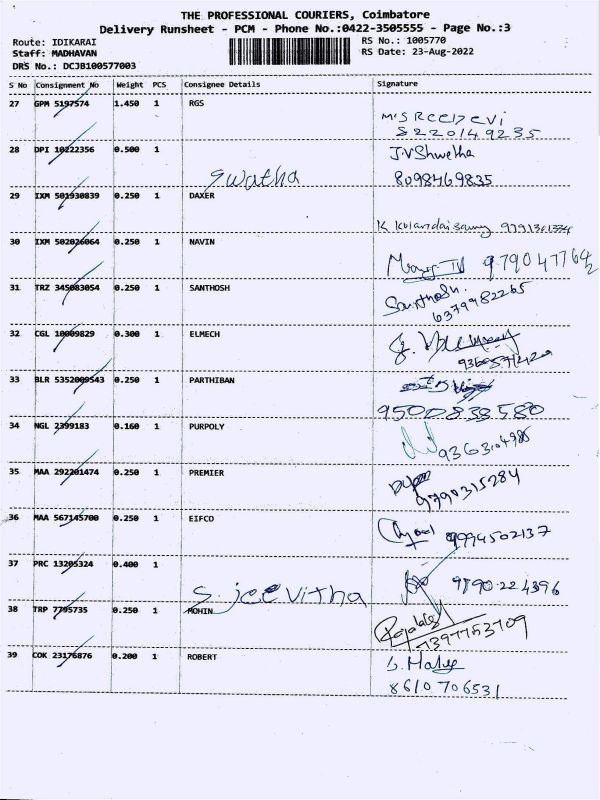 THE PROFESSIONAL COURIERS, Coimbatore
Delivery Runsheet - PCM - Phone No.:0422-3505555 - Page No.:3
Route: IDIKARAI RS No.: 1005770
Staff: MADHAVAN RS Date: 23-Aug-2022
DRS No.: DCJB100577003
S No Consignment No Weight PCS Consignee Details Signature
27 GPM 5197574 1.450 1 RGS
M/S SREEDEVI
8220149235
28 DPI 10222356 0.500 1 J.V Shwetha
Swatha 8098469835
29 IXM 501930839 0.250 1 DAXER
K Kulandaisamy
30 IXM 502026064 0.250 1 NAVIN
9790477642
31 TRZ 345083054 0.250 1 SANTHOSH Santhosh.
6379482265
32 CGL 10009829 0.300 1 ELMECH
33 BLR 5352009543 0.250 1 PARTHIBAN
9500838580
34 NGL 2399183 0.160 1 PURPOLY
35 MAA 292201474 0.250 1 PREMIER
9790315284
36 MAA 567145700 0.250 1 EIFCO
9994502137
37 PRC 13205324 0.400 1
S. Jeevitha 9790224396
38 TRP 7795735 0.250 1 MOHIN
7397753709
39 COK 23176876 0.200 1 ROBERT
8610706531